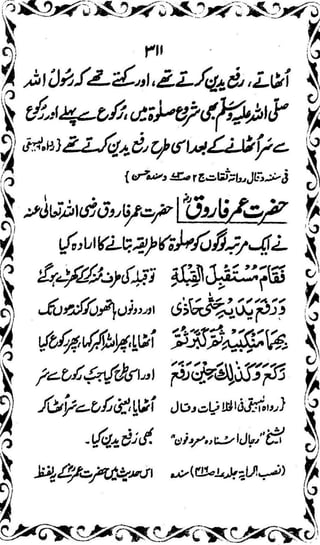 ۳۱۱
اُٹھاتے، رفع یدین کرتے تھے، اور کہتے تھے کہ رسولُ اللہ
صلّی اللہ علیہ وسلّم بھی شروع صلوٰۃ میں، رکوع سے پہلے اور رکوع
سے سَر اُٹھانے کے بعد اسی طرح رفع یدین کرتے تھے {رواہ البیہقی
فی سننہ وقال رواتہ ثقات ج۲ ص۷۳ وسندہ حسن}
حضرت عمر فاروقؓ حضرت عمر فاروق رضی اللہ تعالیٰ عنہ
نے ایک مرتبہ لوگوں کو صلوٰۃ کا طریقہ بتانے کا ارادہ کیا
فَقَامَ مُسْتَقْبِلَ الْقِبْلَةِ تو قبلہ کی طرف مُنہ کر کے کھڑے ہو گئے
وَرَفَعَ يَدَيْهِ حَتّٰى حَاذٰى اور دونوں ہاتھوں کو کندھوں تک
بِهِمَا مَنْكِبَيْهِ ثُمَّ كَبَّرَ ثُمَّ اُٹھایا، پھر اللہ اکبر کہا، پھر رکوع کیا
رَكَعَ وَكَذٰلِكَ حِيْنَ رَفَعَ اور اسی طرح کیا جب رکوع سے سَر
{رواہ البیہقی فی الخلافیات وقال اُٹھایا، یعنی رکوع سے سَر اُٹھا کر
الشیخ "رجال اسنادہ معروفون" بھی رفع یدین کیا۔
(نصب الرایۃ جلد۱ ص۴۱۶) سندہ اس حدیث میں حضرت عمرؓ کے یہ لفظ